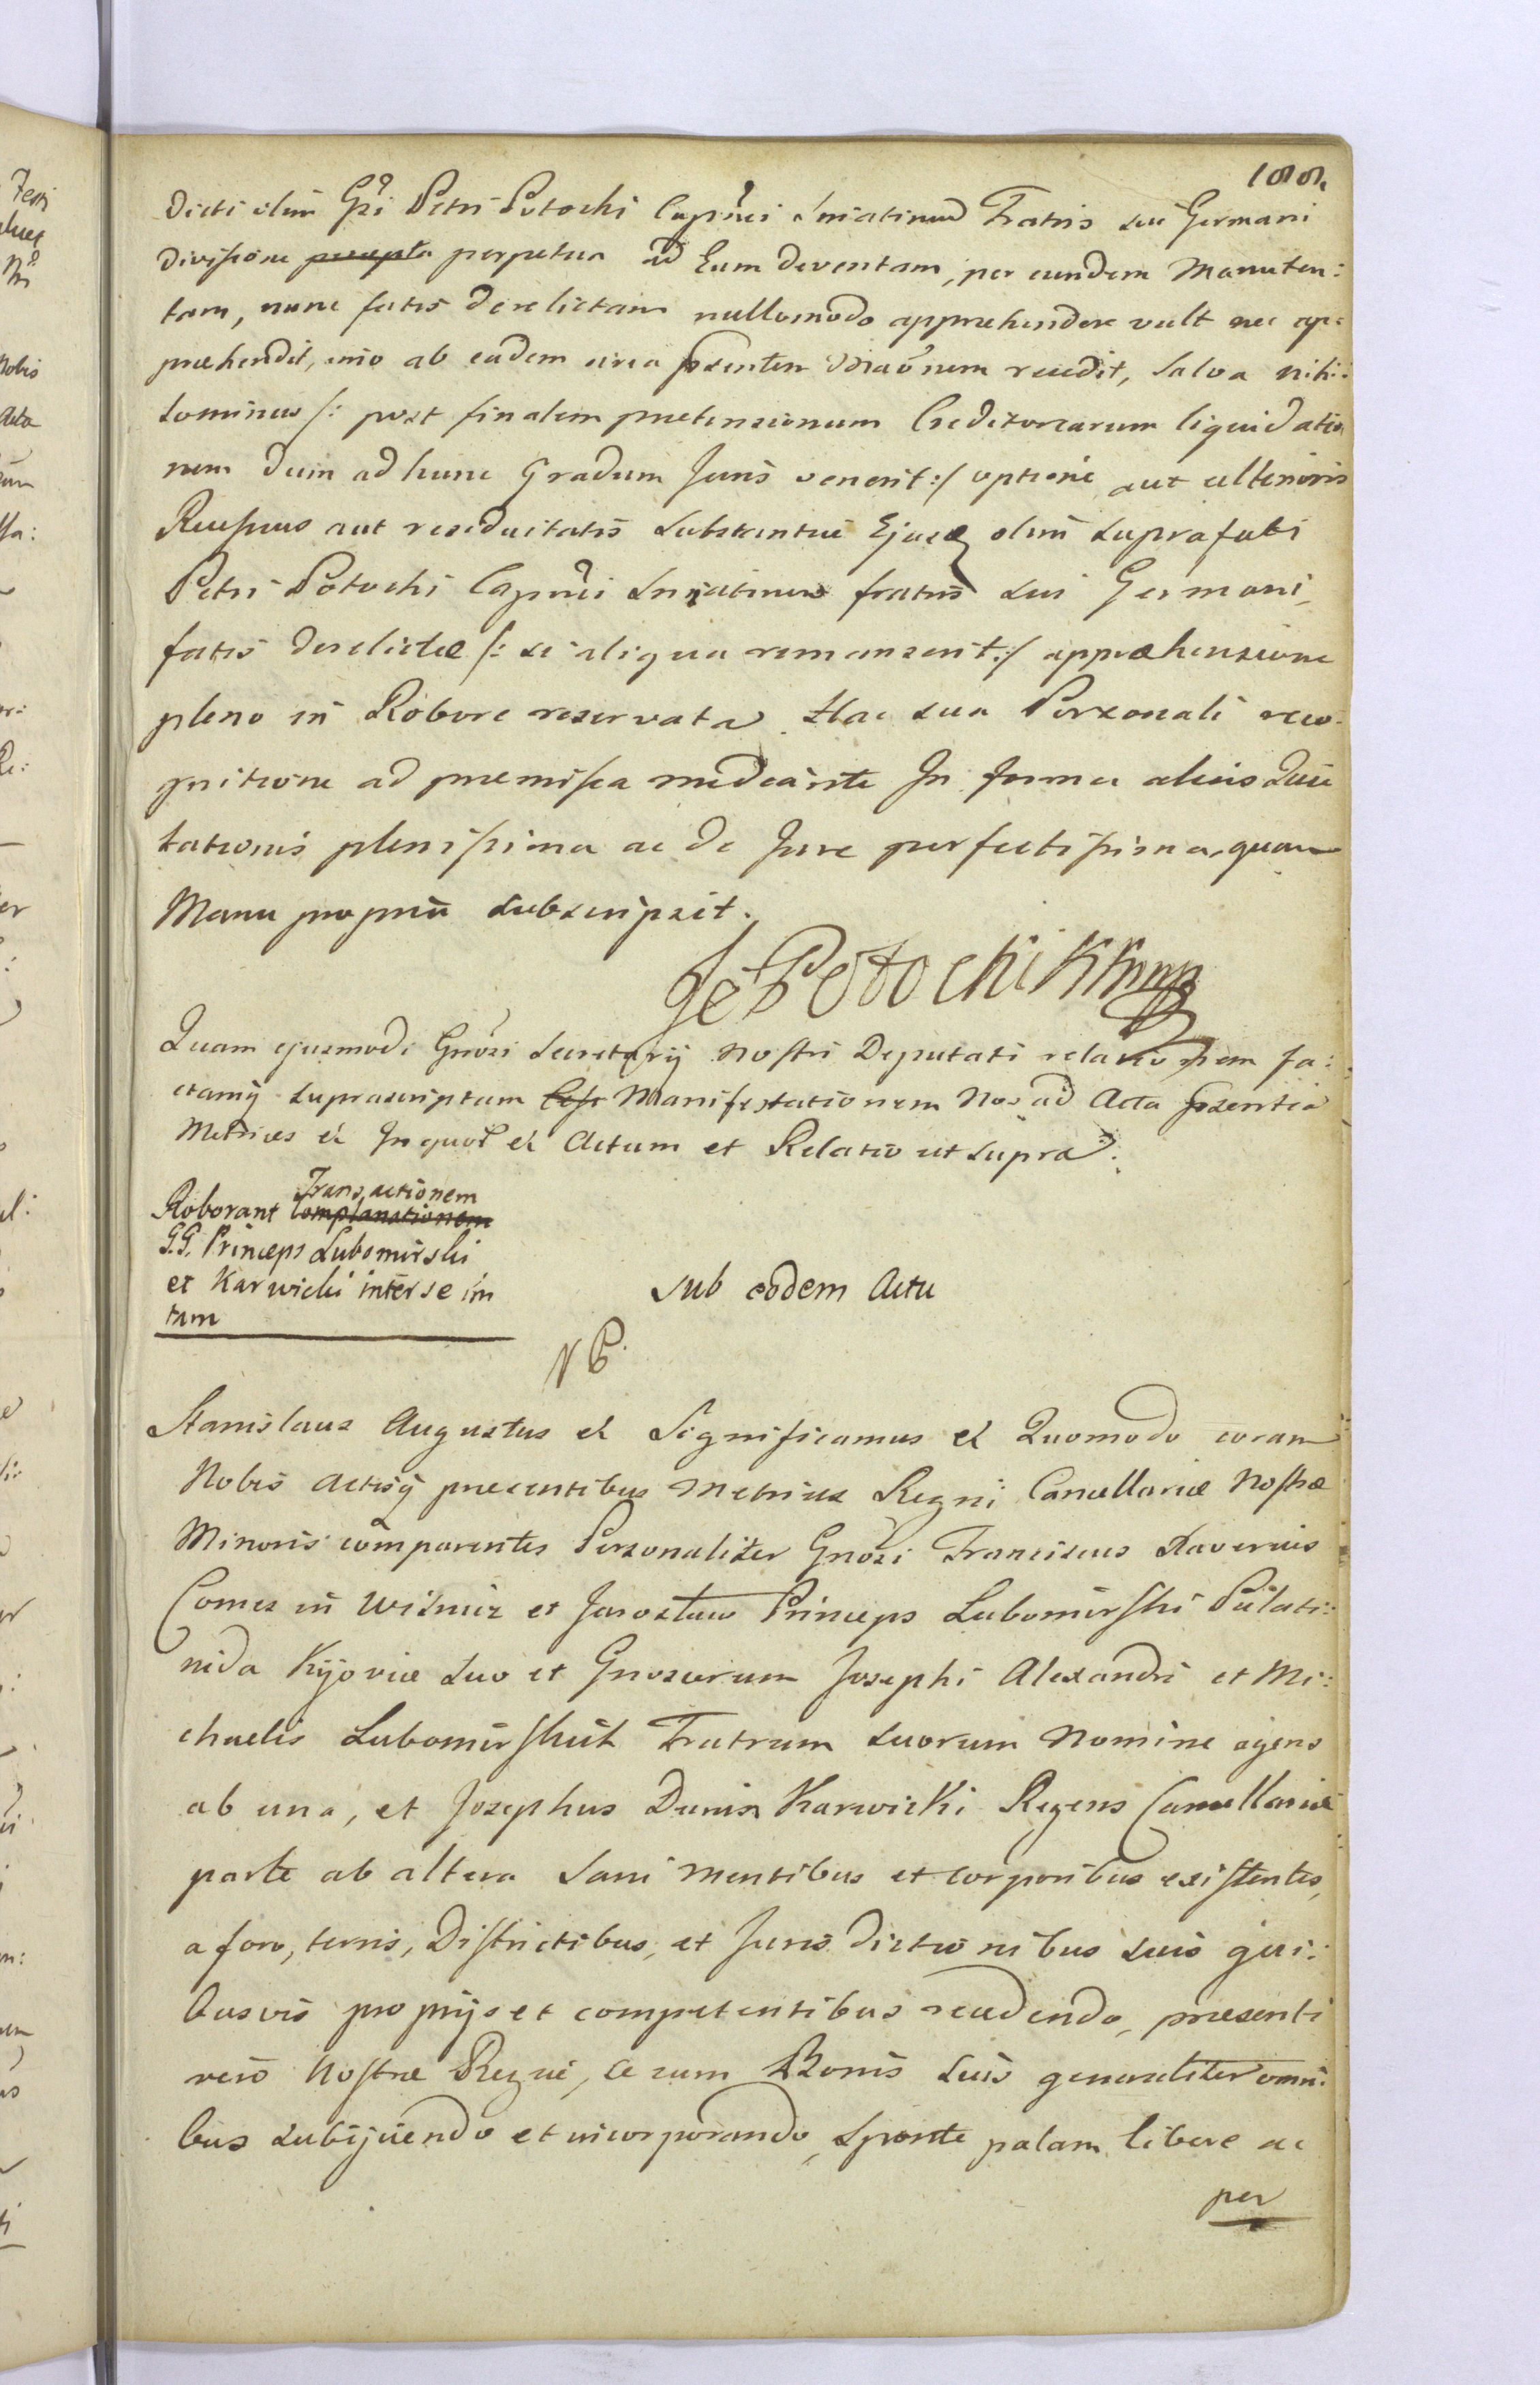 188.
Dicti olim Gsi Petri Potocki Capnei Sniatinen Fratris sui Germani
divisione perpetua ad Eum deventam, per eundem Manuten:
tam, nunc fatis derelictam nullomodo apprehendere vult nec ap:
præhendit, imo ab eadem circa præntem recedit, Salva nihi:
lominus /: post finalem prætensionum Creditorearum liquidatio
nem dum ad hunc Gradum Juris venerit :/ optione aut ulterioris
Recessus aut residuitatis Substantiæ Ejusd olim suprafati
Petri Potocki Capnei Sniatinen fratris sui Germani,
fatis derelictæ /: si aliqua remanserit :/ appræhensione
pleno in Robore reservata. Hac sua Personali reco:
gnitione ad præmissa mediante In forma alias Quie
tationis plenissima ac de Jure perfectissima, quam
Manu propria subscripsit.
Potocki
Quam ejusmodi Gnosi Secretarij Nostri Deputati relationem fa:
ctamq suprascriptam Manifestationem Nos ad Acta præntia
Metrices et Inquor et Actum et Relatio ut supra.
Transactionem
Roborant Complanationem
G.G. Princeps Lubomirski
et Karwicki inter se ini
tam
Sub eodem Actu
NP.
Stanislaus Augustus et Significamus et Quomodo coram
Nobis Actisq præsentibus Metrices Regni Cancellariæ Nostræ
Minoris comparentes Personaliter Gnosi Franciscus Xaverius
Comes in Wisnicz et Jaroslaw Princeps Lubomirski Palati:
nida Kijoviæ suo et Gnosorum Josephi Alexandri et Mi:
chaelis Lubomirskich Fratrum suorum Nomine agens
ab una, et Josephus Dunin Karwicki Regens Cancellariæ
parte ab altera Sani Mentibus et Corporibus existentes,
a foro, terris, Districtibus, et Juris dictionibus suis qui:
busvis proprijs et competentibus recedendo, præsenti
vero Nostræ Regiæ, se cum Bonis Suis generaliter omni:
bus subijciendo et incorporando, Sponte palam libere ac
per